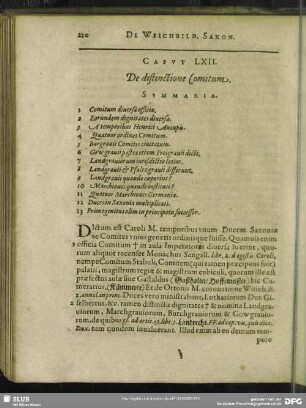 210 DE WEICHBILD. SAXON.
CAPVT LXII.
De distinctione Comitum.
SVMMARIA.
1 Comitum diversa officia.
2 Earundem dignitates diversæ.
3 A temporibus Henrici Aucupis.
4 Quatuor ordines Comitum.
5 Burgravii Comites civitatum.
6 Gowgravii postea etiam Freigravii dicti,
7 Landgraviorum jurisdictio latior.
8 Landgravii & Pfaltzgravii differunt,
9 Landgravii quando cæperint?
10 Marchiones quando instituti?
11 Quatuor Marchiones Germaniæ.
12 Duces in Saxonia multiplicati.
13 Primogenitus olim in principatu successor.
DIctum est Caroli M. temporibus unum Ducem Saxoniæ
ac Comites unius generis ordinisque fuisse. Quamvis enim
officia Comitum † in aula Imperatoris diversa fuerint, quo-
rum aliquot recenset Monachus Sangall. lib. 2. de gestis Caroli,
nempe Comitum Stabuli, Comitem (qui tamen præcipuus fuit)
palatii, magistrum regiæ & magistrum cubiculi, quorum ille est
præfectus aulæ sive Castaldius
merarius, (Kämmerer)
2. annal. in princ. Duces vero ministrabant, Lotharinum Dux Gi-
selbertus, &c. tamen distincta dignitates † & nomina Landgra-
viorum, Marchgraviorum, Burchgraviorum & Gowgravio-
rum, de quibus
tum tandem invaluerunt. Illud enim ab eo demum tem-
pore